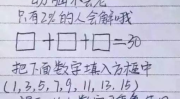 只有2%的人会解哦
□+□+□=30
把下面数字填入方框中
(1,3,5,7,9,11,13,15)